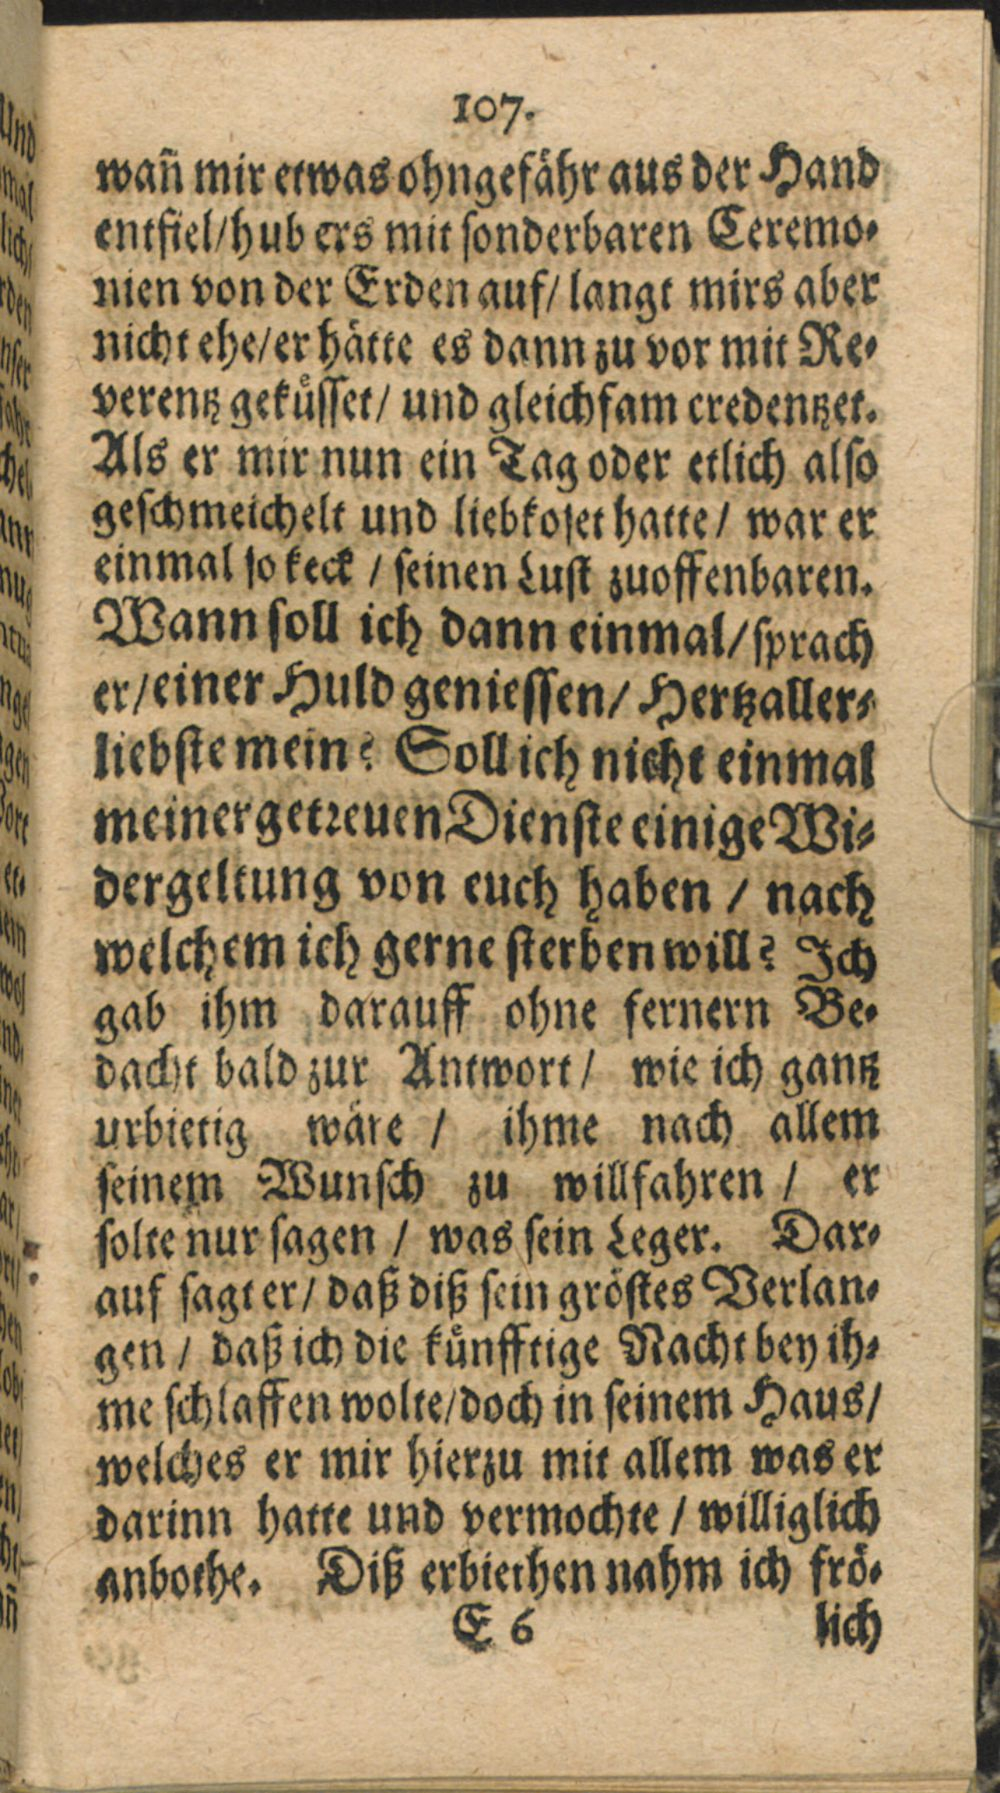 107.
wañ mir etwas ohngefähr aus der Hand
entfiel/hub ers mit sonderbaren Ceremo-
nien von der Erden auf/ langt mirs aber
nicht ehe/er hätte es dann zu vor mit Re-
verentz geküsset/ und gleichsam credentzet.
Als er mir nun ein Tag oder etlich also
geschmeichelt und liebkoset hatte/ war er
einmal so keck / seinen Lust zuoffenbaren.
Wann soll ich dann einmal/sprach
er/einer Huld geniessen/ Hertzaller-
liebste mein? Soll ich nicht einmal
meiner getreuen Dienste einige Wi-
dergeltung von euch haben / nach
welchem ich gerne sterben will? Ich
gab ihm darauff ohne fernern Be-
dacht bald zur Antwort/ wie ich gantz
urbietig wäre / ihme nach allem
seinem Wunsch zu willfahren / er
solte nur sagen / was sein Leger. Dar-
auf sagt er/ daß diß sein gröstes Verlan-
gen / daß ich die künfftige Nacht bey ih-
me schlaffen wolte/doch in seinem Haus/
welches er mir hierzu mit allem was er
darinn hatte und vermochte / williglich
anbothe. Diß erbiethen nahm ich frö-
E 6 lich